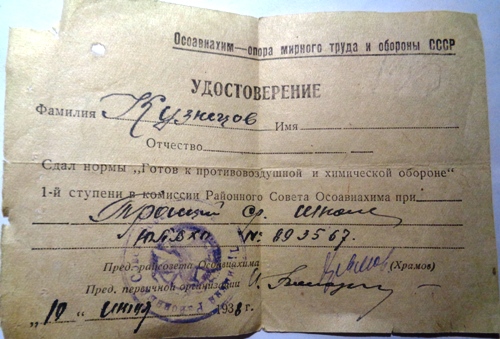 Осоавиахим—опора мирного труда и обороны СССР
УДОСТОВЕРЕНИЕ
Фамилия Кузнецов Имя
Отчество
Сдал нормы „Готов к противовоздушной и химической обороне"
1-й ступени в комиссии Районного Совета Осоавиахима при
ср. школе
№ 693567.
Пред. райсовета Осоавиахима Храмов (Храмов)
Пред. первичной организации
„10" июня 1938 г.